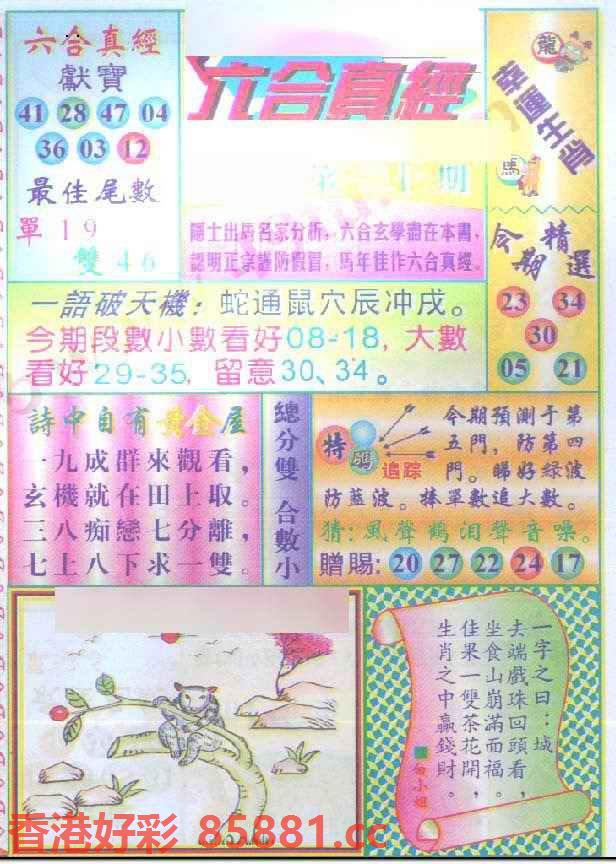 六合真經
獻寶
41 28 47 04
36 03 12
最佳尾數
單 1 9
雙 4 6
六合真經
期
隱士出馬名家分析，六合玄學盡在本書，
認明正宗謹防假冒，馬年佳作六合真經。
龍
幸運生肖
馬
今期精選
23 34
30
05 21
一語破天機：蛇通鼠穴辰冲戌。
今期段數小數看好08-18，大數
看好29-35，留意30、34。
詩中自有黃金屋
一九成群來觀看，
玄機就在田上取。
三八痴戀七分離，
七上八下求一雙。
總分雙 合數小
特碼
追踪
今期預測于第
五門，防第四
門。睇好緑波
防藍波。捧單數追大數。
猜：風聲鶴泪聲音噪。
贈賜：20 27 22 24 17
一字之曰：城
去端戲珠回頭看，
坐食山崩滿而福。
佳果一雙茶花開，
生肖之中贏錢財。
白小姐
香港好彩 85881.cc